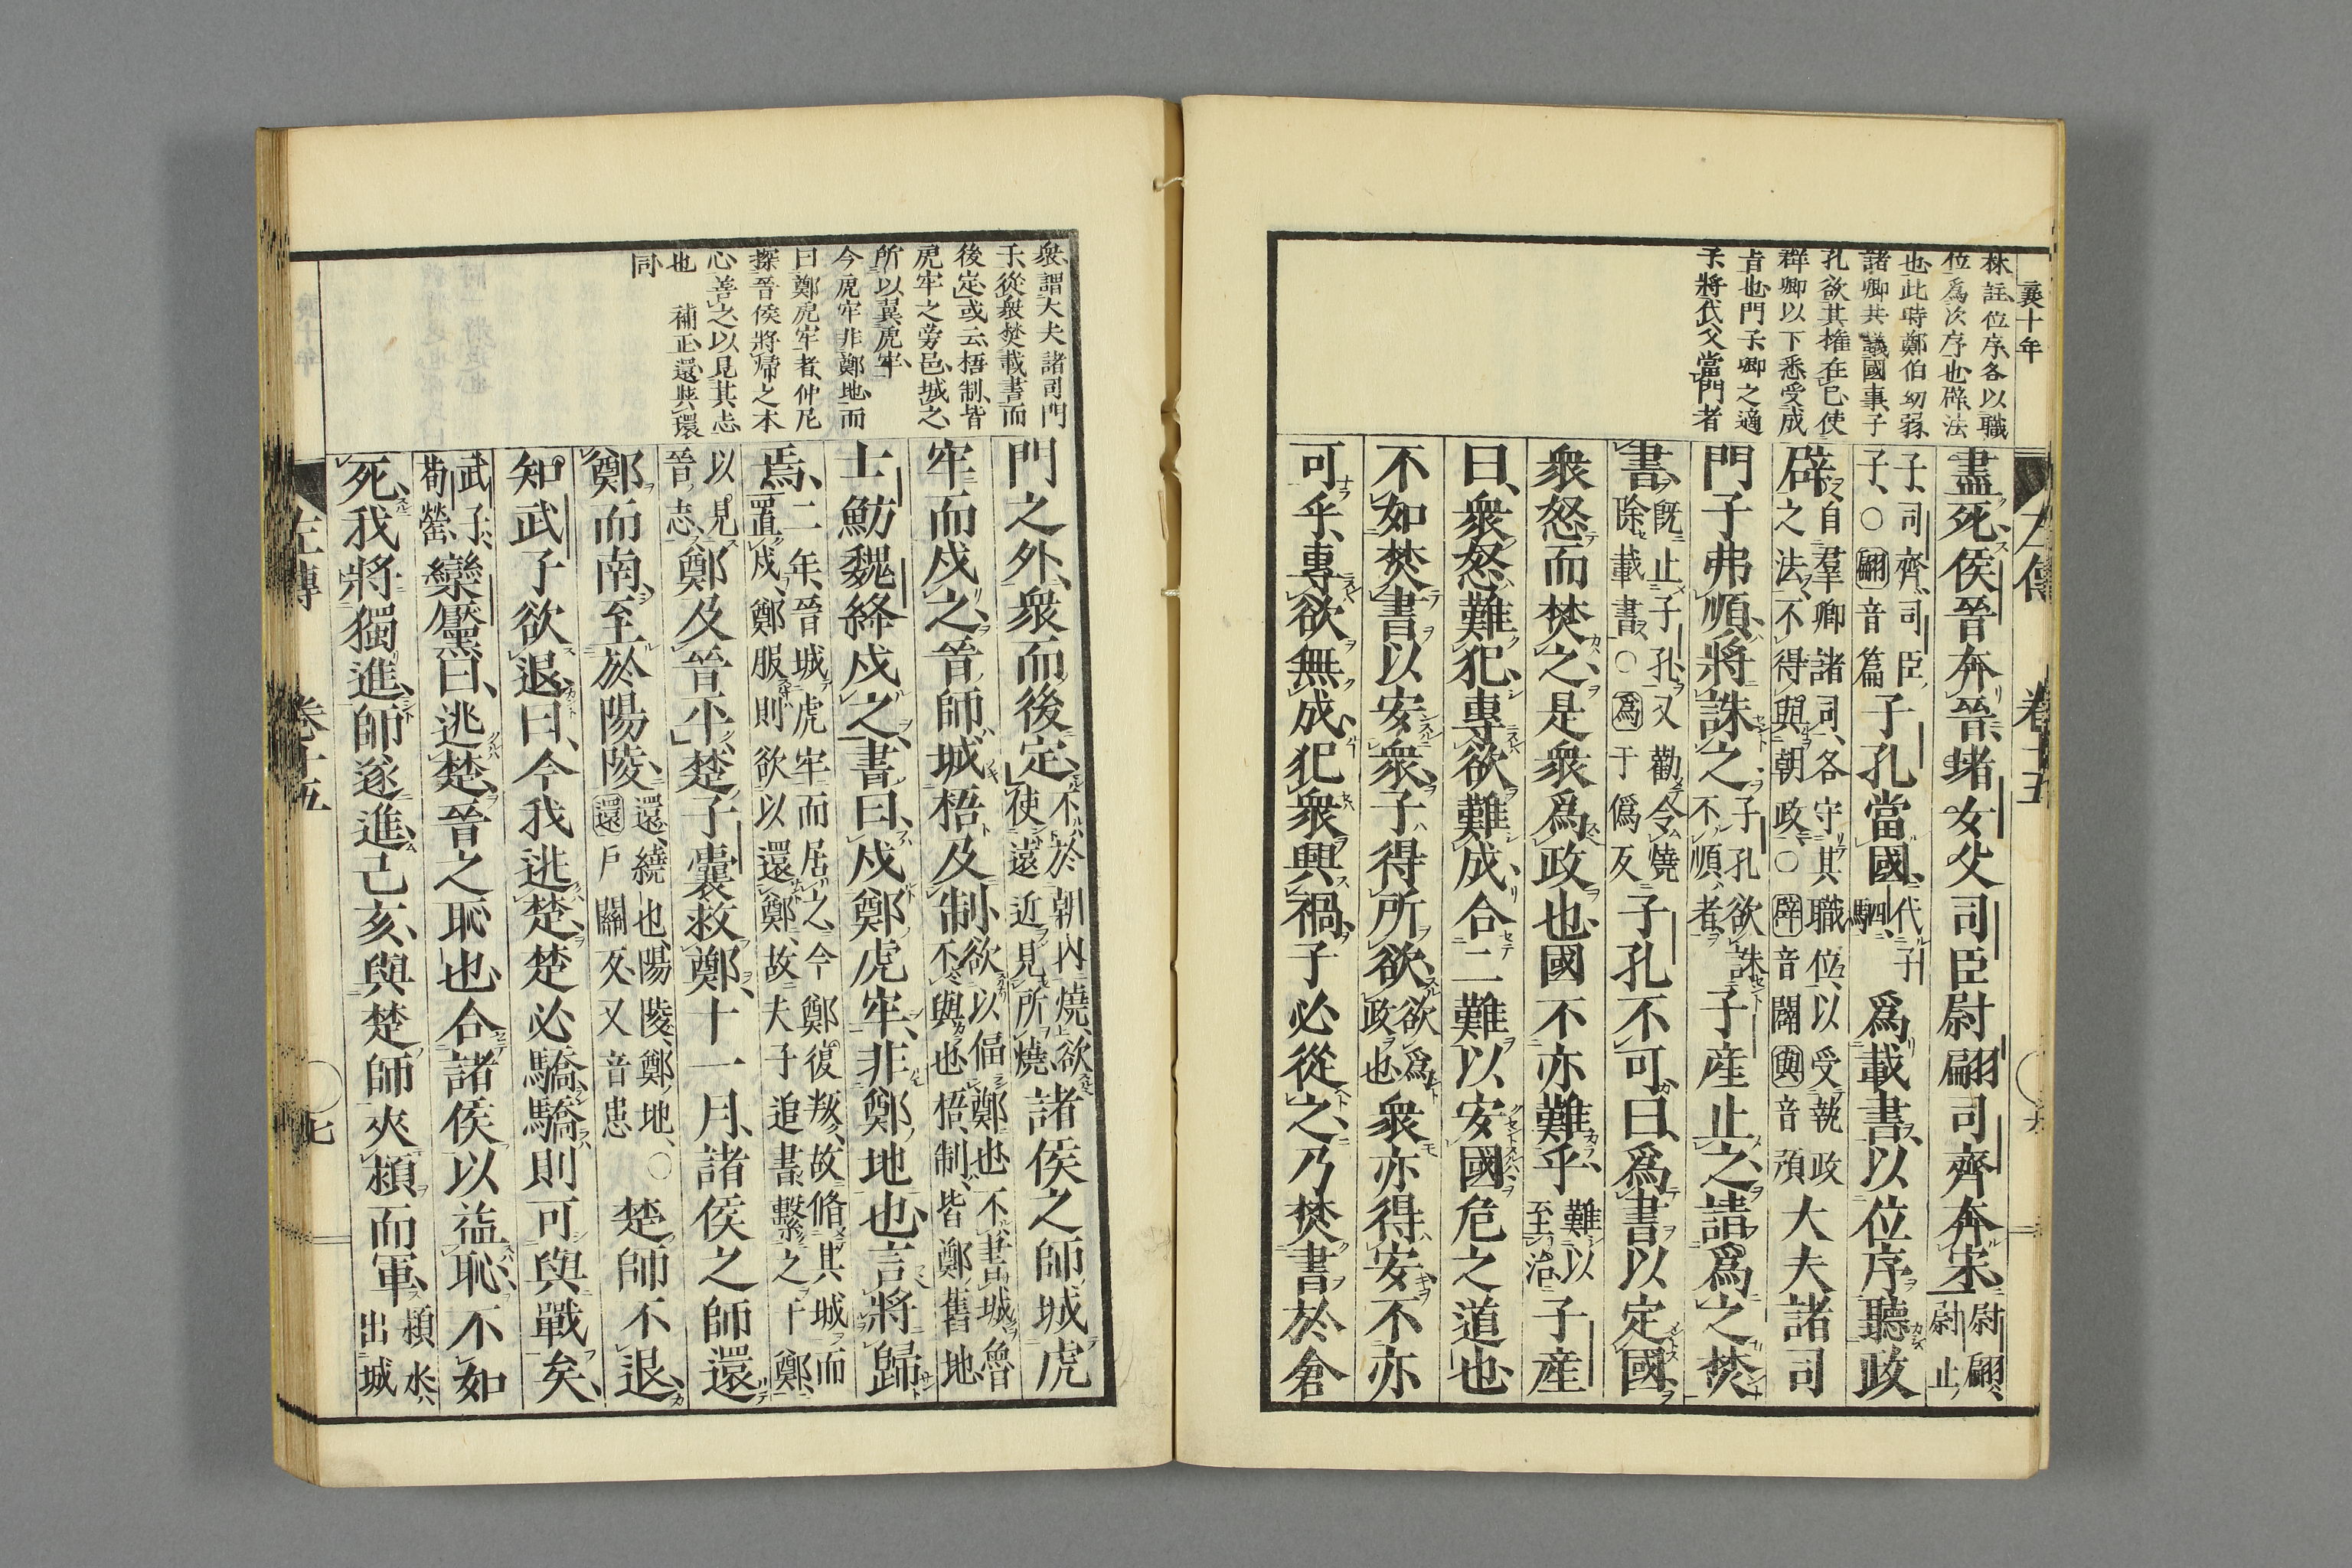 襄十年
林註位序各以職
位爲次序也辟法
也此時鄭伯幼弱
諸卿共議國事子
孔欲其權在已使
群卿以下悉受成
旨也門子卿之適
子將代父當門者
左傳 卷十五
盡死侯晉奔晉堵女父司臣尉翩司齊奔宋尉翩尉止
子司齊司臣子○翩音篇子孔當國代子駟爲載書以位序聽政
辟自羣卿諸司各守其職位以受執政之法不得與朝政○辟音闢與音預大夫諸司
門子弗順將誅之子孔欲誅不順者子産止之請爲之焚
書旣止子孔又勸令燒除載書○爲于僞反子孔不可曰爲書以定國
衆怒而焚之是衆爲政也國不亦難乎難以至治子産
曰衆怒難犯專欲難成合二難以安國危之道也
不如焚書以安衆子得所欲欲爲政也衆亦得安不亦
可乎專欲無成犯衆興禍子必從之乃焚書於倉
衆謂大夫諸司門
子從衆焚載書而
後定或云梧制皆
虎牢之旁邑城之
所以翼虎牢
今虎牢非鄭地而
曰鄭虎牢者仲尼
探晉侯將歸之本
心善之以見其志
也 補正還與環
同
門之外衆而後定不於朝内燒欲使遠近見所燒諸侯之師城虎
牢而戍之晉師城梧及制欲以偪鄭也不書城魯不與也梧制皆鄭舊地
士魴魏絳戍之書曰戍鄭虎牢非鄭地也言將歸
焉二年晉城虎牢而居之今鄭復叛故脩其城而置戍鄭服則欲以還鄭故夫子追書繫之于鄭
以見晉志鄭及晉平楚子囊救鄭十一月諸侯之師還
鄭而南至於陽陵還繞也陽陵鄭地○還戶關反又音患楚師不退
知武子欲退曰今我逃楚楚必驕驕則可與戰矣
武子荀罃欒黶曰逃楚晉之恥也合諸侯以益恥不如
死我將獨進師遂進己亥與楚師夾潁而軍潁水出城
左傳 卷十五 七